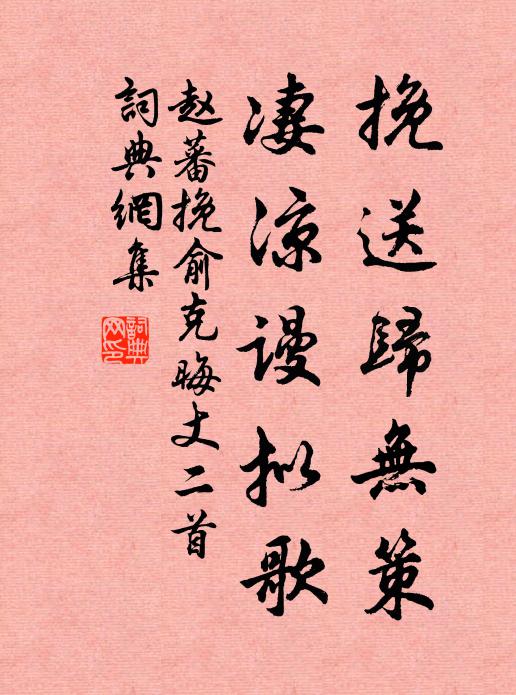 挽送歸無策
凄涼謾拟歌
赵蕃挽俞克晦丈二首
詞典網集
詞典網印